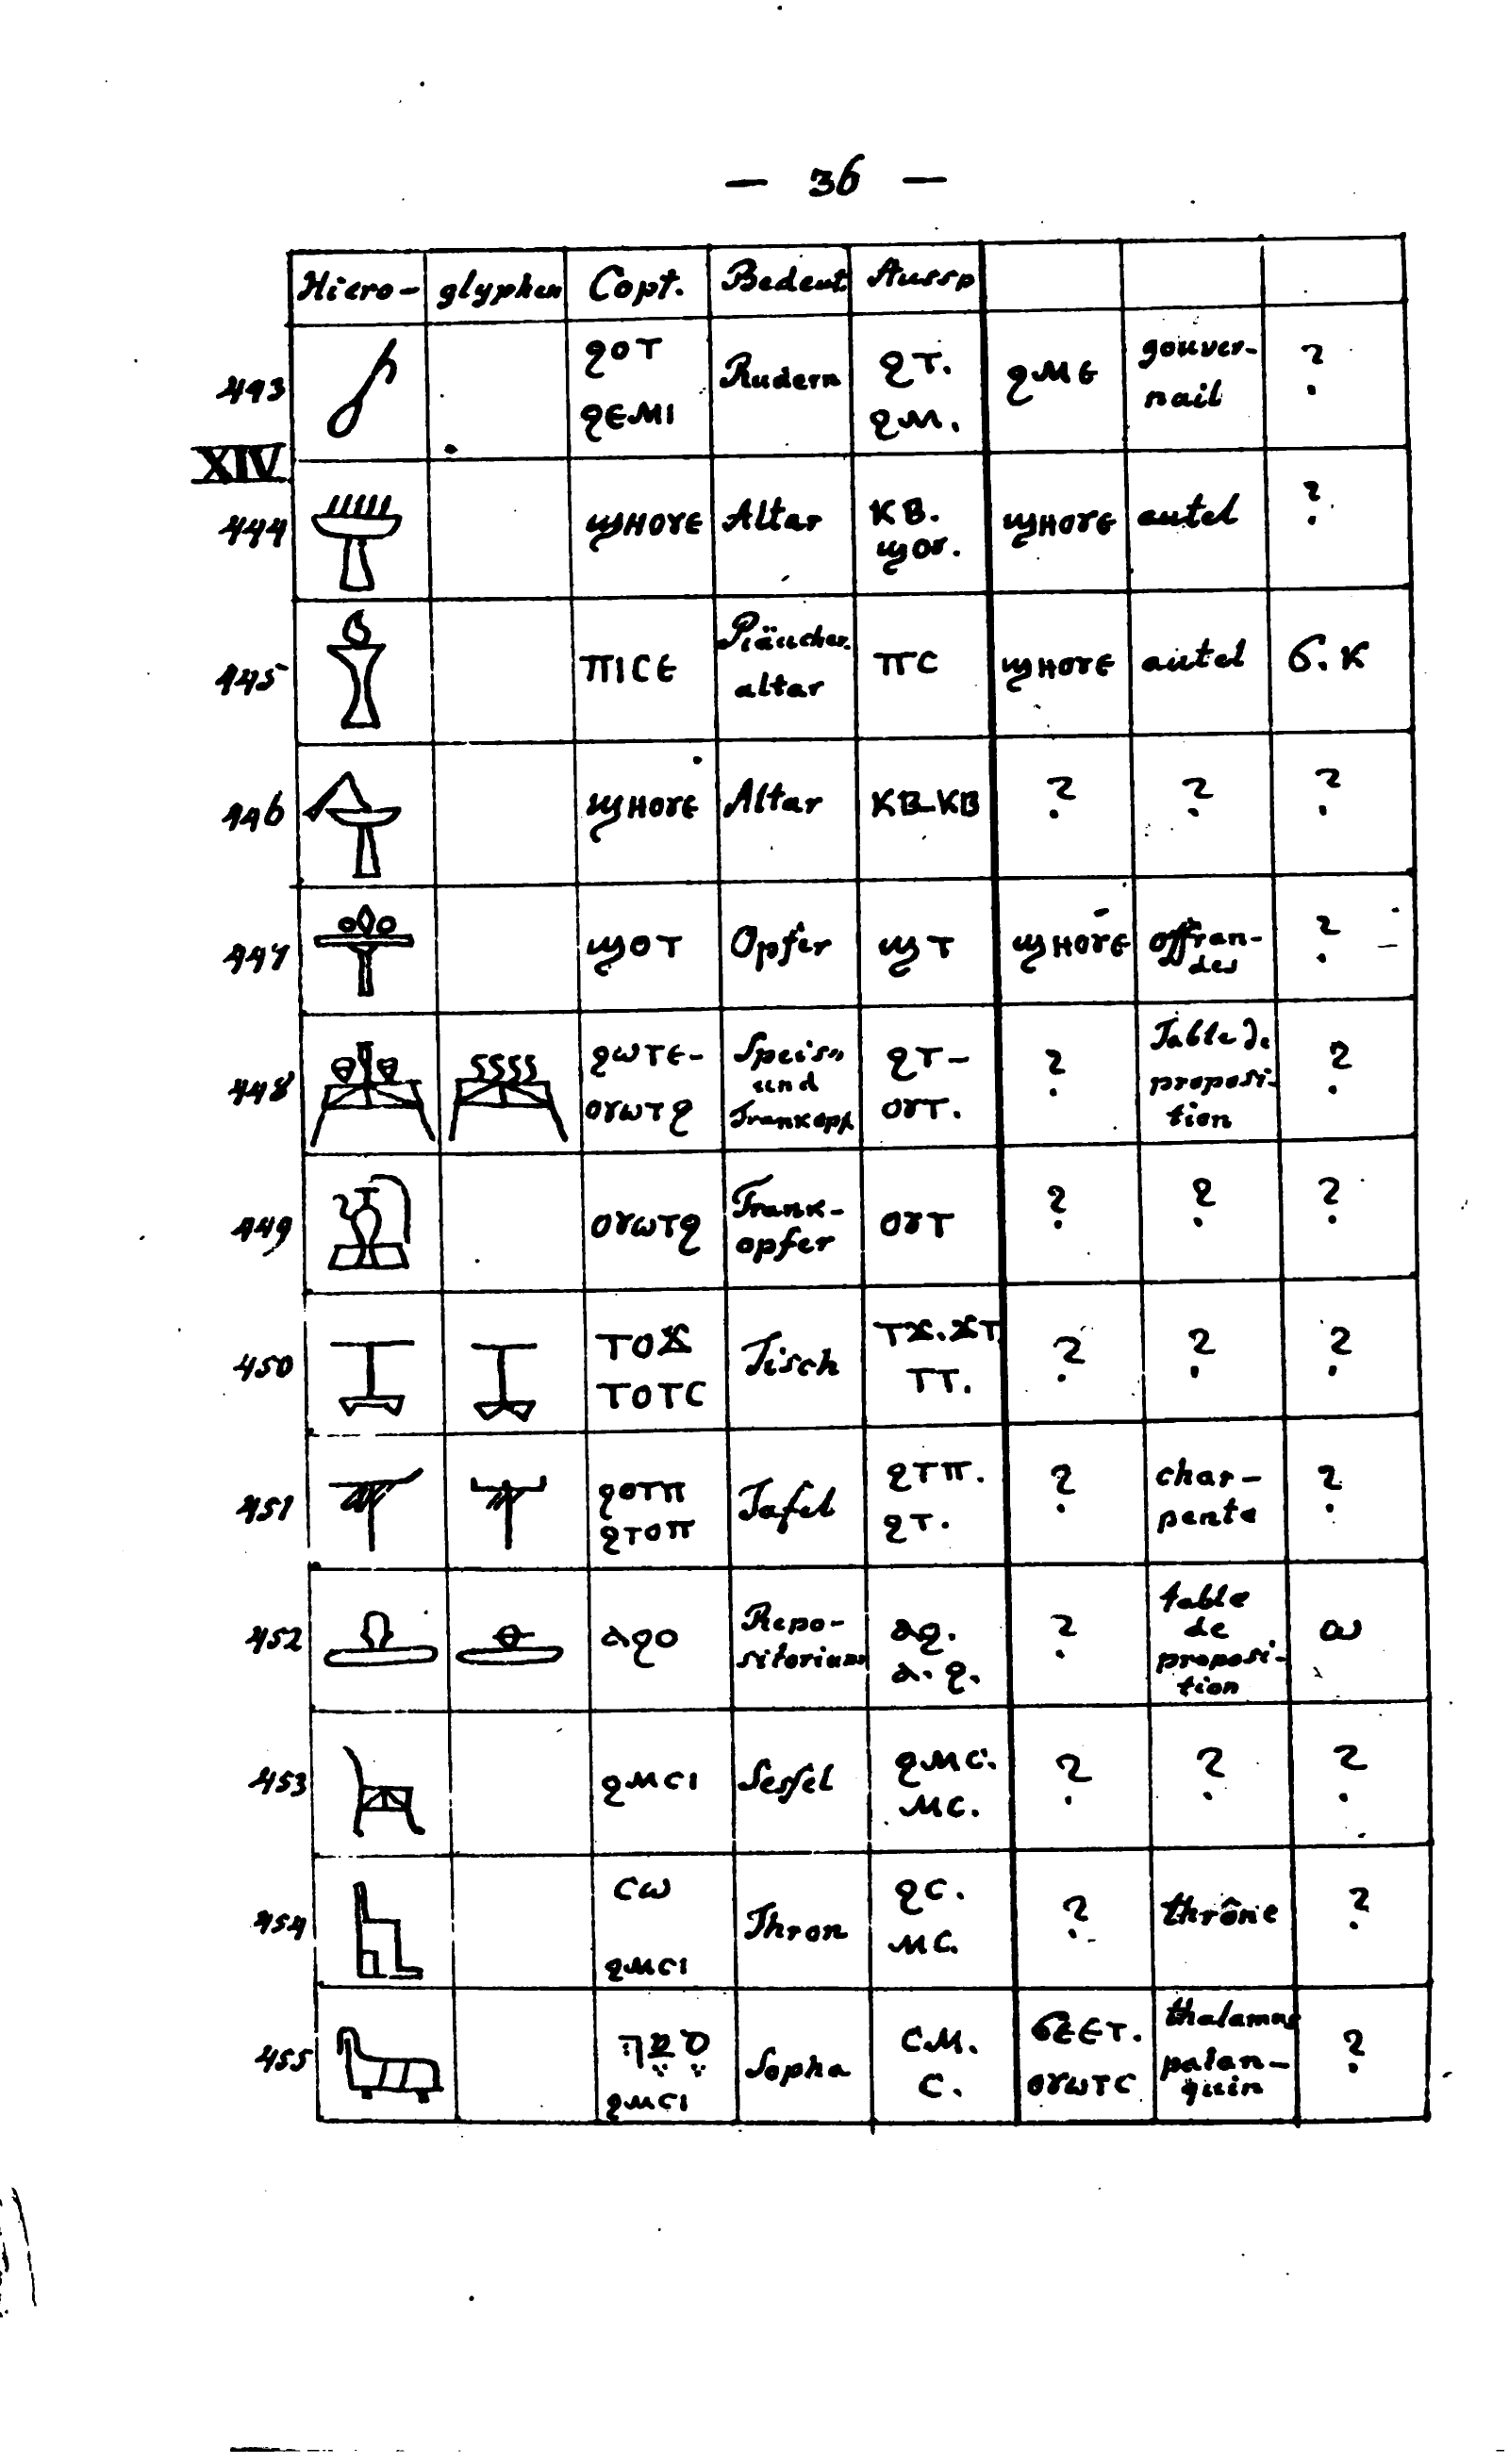 — 36 —
Hiero- glyphen Copt. Bedeut Aussp
443 ϩⲟⲧ ϩⲉⲙⲓ Rudern ϩⲧ. ϩⲙ. ϩⲙⲉ gouver-nail ?
XIV
444 ϣⲏⲟⲩⲉ Altar ⲕⲃ. ϣⲟⲩ. ϣⲏⲟⲩⲉ autel ?
445 ⲡⲓⲥⲉ Räucher-altar ⲡⲥ ϣⲏⲟⲩⲉ autel ϭ. ⲕ
446 ϣⲏⲟⲩⲉ Altar ⲕⲃ-ⲕⲃ ? ? ?
447 ϣⲟⲧ Opfer ϣⲧ ϣⲏⲟⲩⲉ offran-des ?
448 ϩⲱⲧⲉ- ⲟⲩⲱⲧϩ Speis= und Trankopf. ϩⲧ- ⲟⲩⲧ. ? Table de proposi-tion ?
449 ⲟⲩⲱⲧϩ Trank-opfer ⲟⲩⲧ ? ? ?
450 ⲧⲟϫ ⲧⲟⲧⲥ Tisch ⲧϫ.ϫⲧ. ⲧⲧ. ? ? ?
451 ϩⲟⲧⲡ ϩⲧⲟⲡ Tafel ϩⲧⲡ. ϩⲧ. ? char-pente ?
452 ⲁϩⲟ Repo-sitorium ⲁϩ. ⲁ. ϩ. ? table de proposi-tion ⲱ
453 ϩⲙⲥⲓ Sessel ϩⲙⲥ. ⲙⲥ. ? ? ?
454 ⲥⲱ ϩⲙⲥⲓ Thron ϩⲥ. ⲙⲥ. ? thrône ?
455 ϩⲙⲥⲓ Sopha ⲥⲙ. ⲥ. ϭⲉⲉⲧ. ⲟⲩⲱⲧⲥ thalamus palan-quin ?